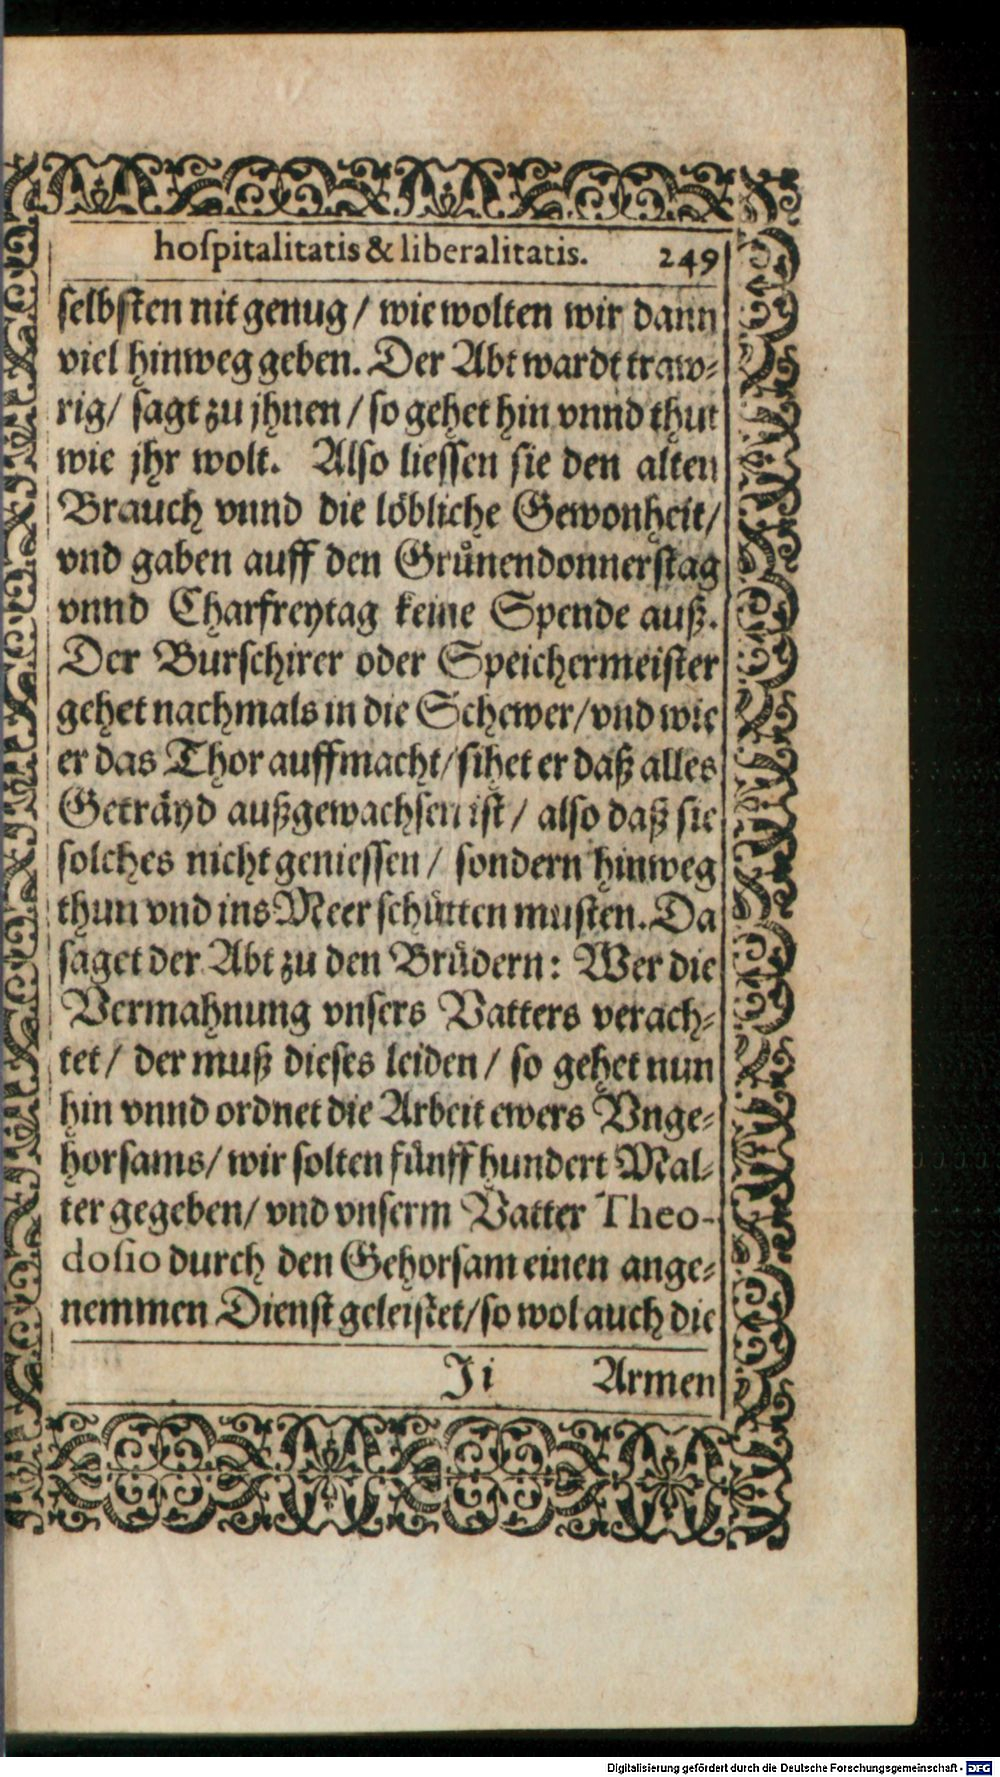 hoſpitalitatis & liberalitatis. 249
ſelbſten nit genug / wie wolten wir dann
viel hinweg geben. Der Abt wardt traw⸗
rig/ ſagt zu jhnen / ſo gehet hin vnnd thut
wie jhr wolt. Alſo lieſſen ſie den alten
Brauch vnnd die löbliche Gewonheit/
vnd gaben auff den Gruͤnendonnerſtag
vnnd Charfreytag keine Spende auß.
Der Burſchirer oder Speichermeiſter
gehet nachmals in die Schewer/vnd wie
er das Thor auffmacht/ſihet er daß alles
Geträyd außgewachſen iſt / alſo daß ſie
ſolches nicht genieſſen / ſondern hinweg
thun vnd ins Meer ſchuͤtten muſten. Da
ſaget der Abt zu den Bruͤdern: Wer die
Vermahnung vnſers Vatters verach⸗
tet / der muß dieſes leiden / ſo gehet nun
hin vnnd ordnet die Arbeit ewers Vnge⸗
horſams/ wir ſolten fuͤnff hundert Mal⸗
ter gegeben/ vnd vnſerm Vatter Theo-
doſio durch den Gehorſam einen ange⸗
nemmen Dienſt geleiſtet/ſo wol auch die
Ji Armen
Digitalisierung gefördert durch die Deutsche Forschungsgemeinschaft - DFG